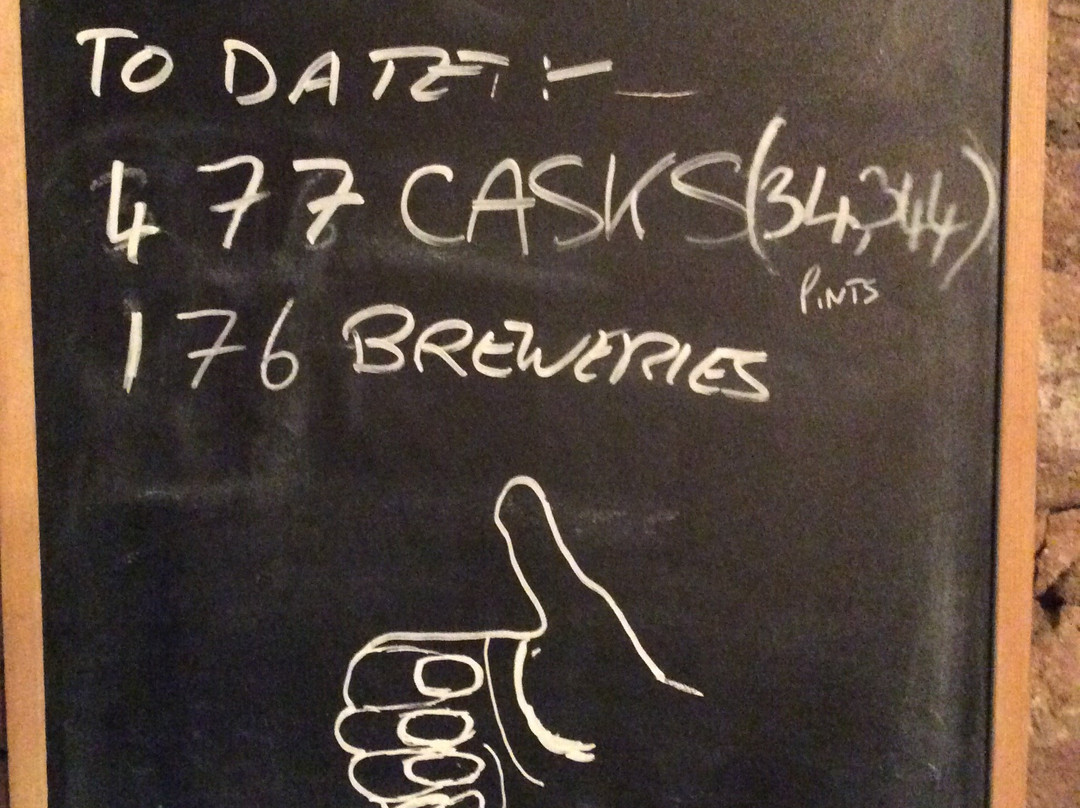 TO DATE :-
477 CASKS (34,344)
PINTS
176 BREWERIES